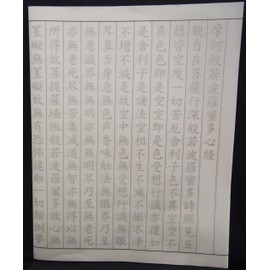 摩訶般若波羅蜜多心經
觀自在菩薩行深般若波羅蜜多時照見五
蘊皆空度一切苦厄舍利子色不異空空不
異色色即是空空即是色受想行識亦復如
是舍利子是諸法空相不生不滅不垢不淨
不增不減是故空中無色無受想行識無眼
耳鼻舌身意無色聲香味觸法無眼界乃至
無意識界無無明亦無無明盡乃至無老死
亦無老死盡無苦集滅道無智亦無得以無
所得故菩提薩埵依般若波羅蜜多故心無
罣礙無罣礙故無有恐怖遠離一切